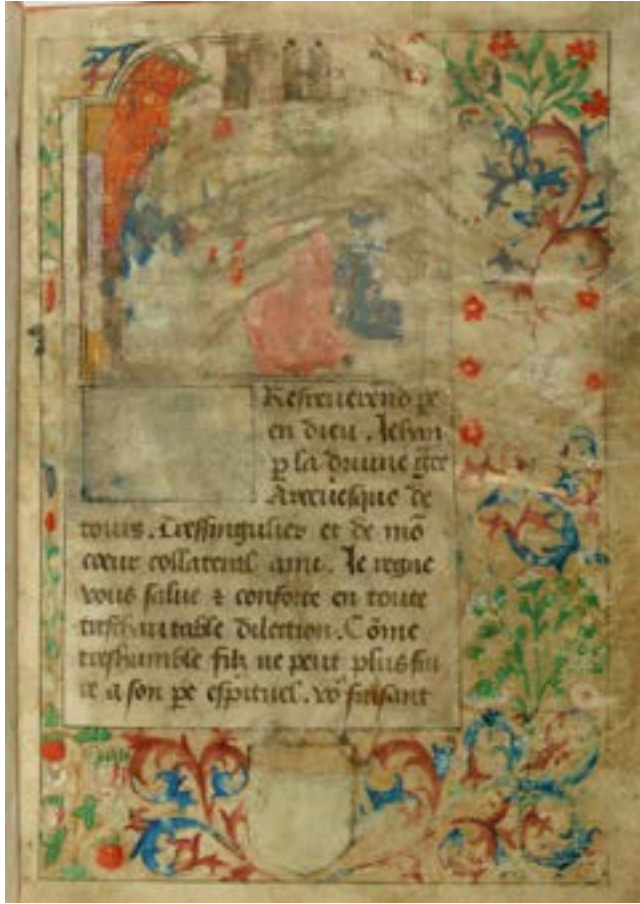 Resreuerend pe
en dieu. Jehan
p la diuine gce
Arceuesque de
tours. Tressingulier et de mō
coeur collateral ami. Je
vous salue ⁊ conforte en toute
tresharitable dilection. Cōme
treshumble filz ne peut plus fai
re a son pe espirituel. vo᷒ faisant